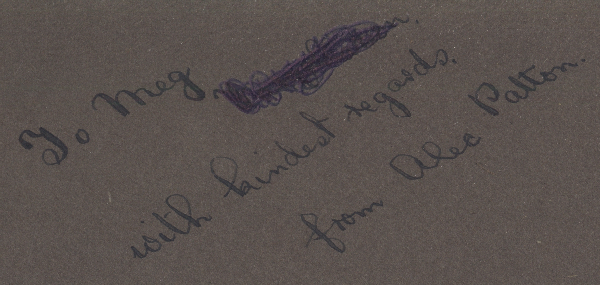 To Meg
with kindest regards.
from Alec Patton.